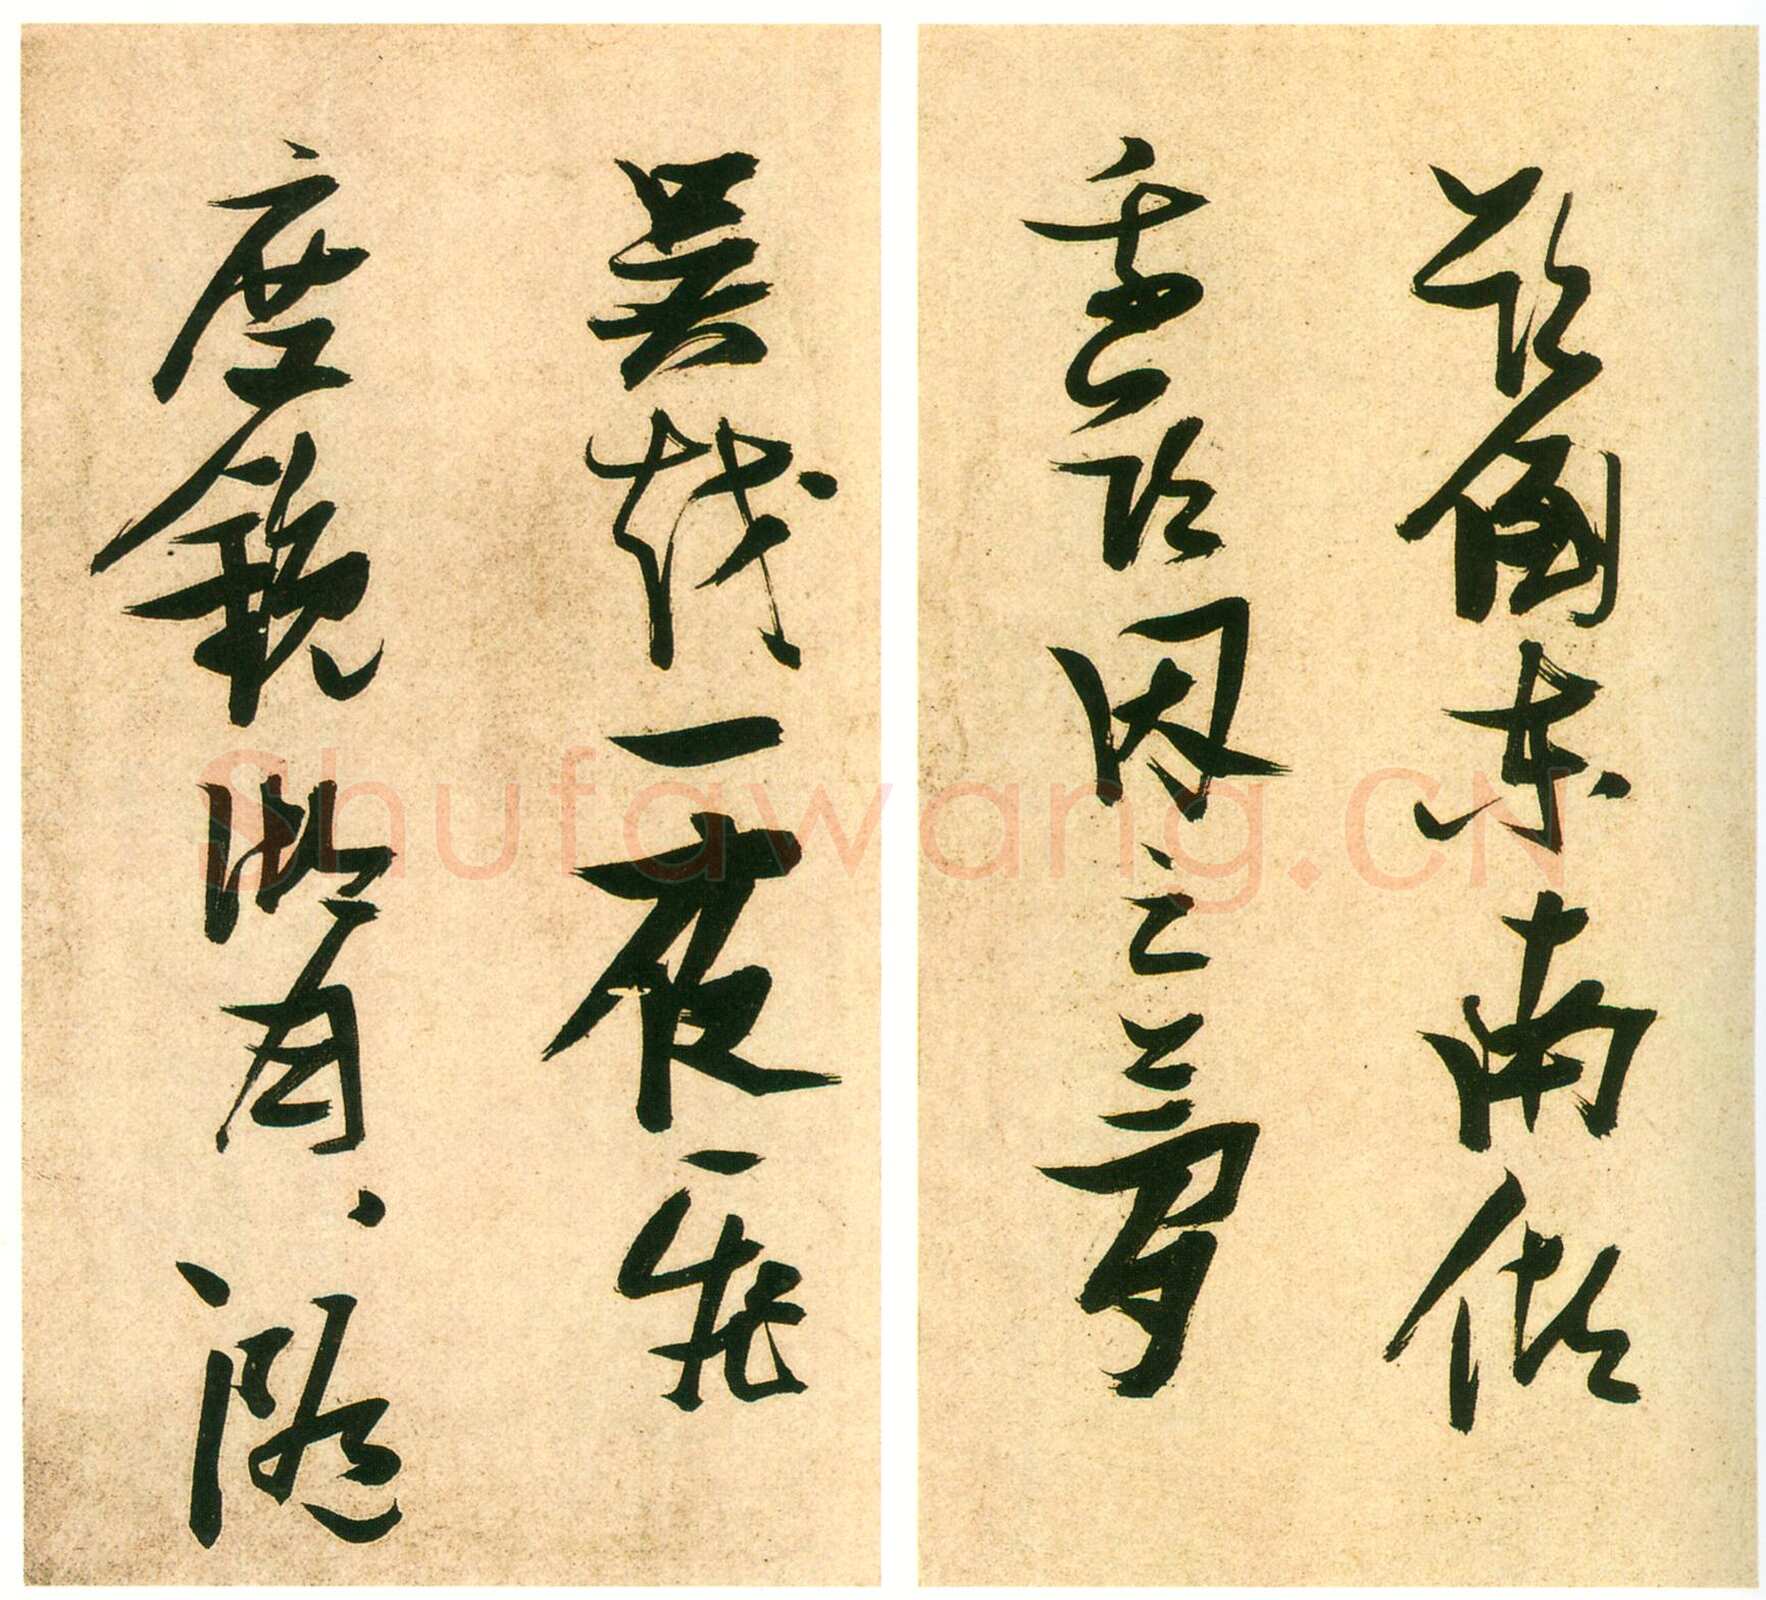 欲倒東南傾
我欲因之夢
吳越一夜飛
度鏡湖月湖
Shufawang.CN